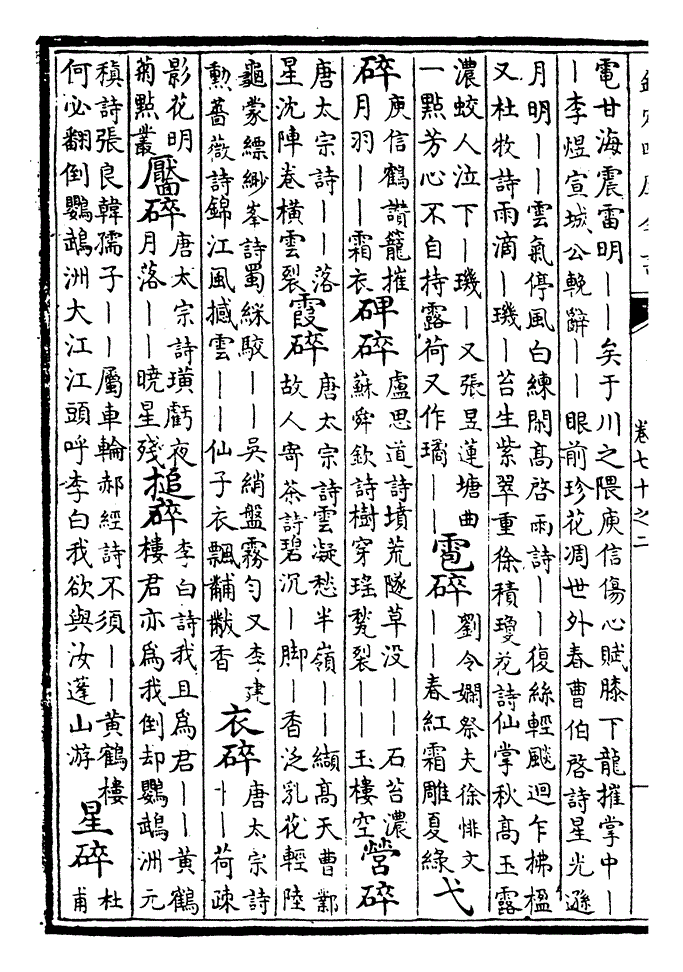 卷七十之二
電甘海震雷明丨丨矣于川之隈庾信傷心賦膝下龍摧掌中丨
丨李煜宣城公輓辭丨丨眼前珍花凋世外春曹伯啓詩星光遜
月明丨丨雲氣停風白練閑高啓雨詩丨丨復絲輕颸迴乍拂楹
又杜牧詩雨滴丨璣丨苔生紫翠重徐積瓊花詩仙掌秋高玉露
濃蛟人泣下丨璣丨又張昱蓮塘曲
一點芳心不自持露荷又作璚丨丨
雹碎
劉令嫻祭夫徐悱文
丨丨春紅霜雕夏綠
弋
碎
庾信鶴讚籠摧
月羽丨丨霜衣
碑碎
盧思道詩墳荒隧草没丨丨石苔濃
蘇舜欽詩樹穿瑤甃裂丨丨玉樓空
營碎
唐太宗詩丨丨落
星沈陣卷橫雲裂
霞碎
唐太宗詩雲凝愁半嶺丨丨纈高天曹鄴
故人寄茶詩碧沉丨脚丨香泛乳花輕陸
龜蒙縹緲峯詩蜀綵駮丨丨吳綃盤霧勻又李建
勲薔薇詩錦江風撼雲丨丨仙子衣飄黼黻香
衣碎
唐太宗詩
丨丨荷疎
影花明
菊點叢
靨碎
唐太宗詩璜虧夜
月落丨丨曉星殘
搥碎
李白詩我且爲君丨丨黄鶴
樓君亦爲我倒却鸚鵡洲元
稹詩張良韓孺子丨丨屬車輪郝經詩不須丨丨黄鶴樓
何必翻倒鸚鵡洲大江江頭呼李白我欲與汝蓬山游
星碎
杜
甫